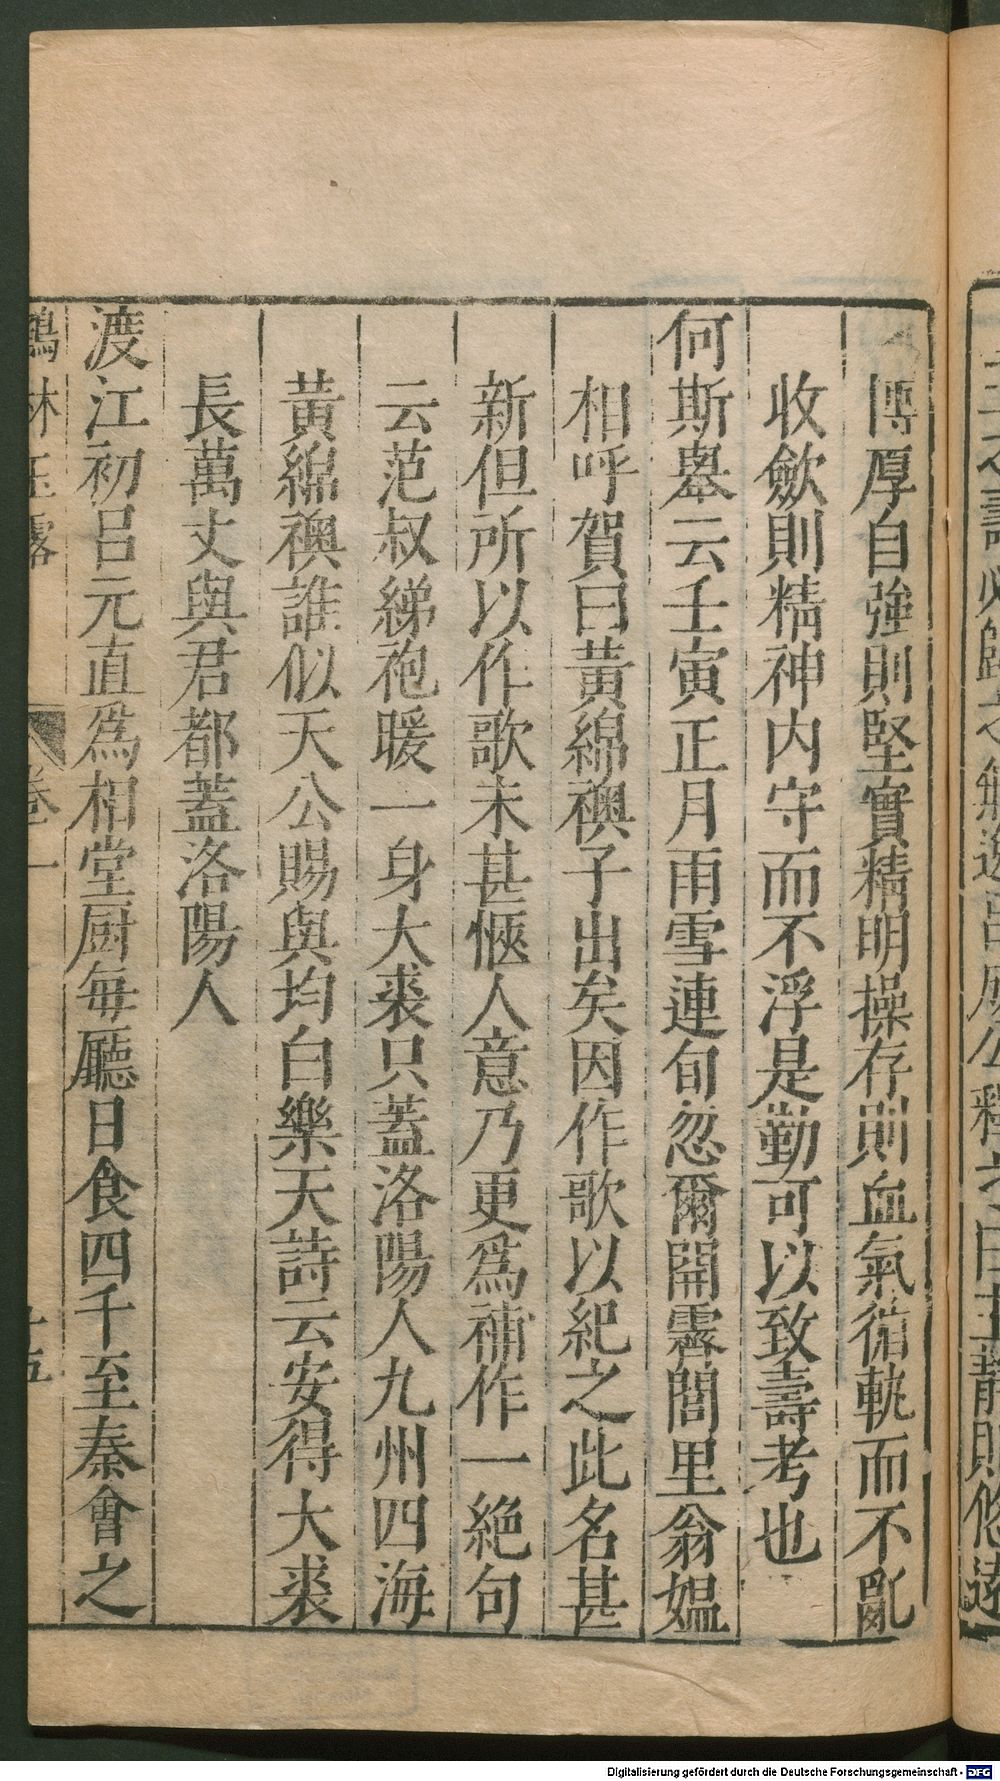 博厚自強則堅實精明操存則血氣循軌而不亂
收斂則精神内守而不浮是勤可以致壽考也
何斯舉云壬寅正月雨雪連旬忽爾開霽閭里翁媼
相呼賀曰黃綿襖子出矣因作歌以紀之此名甚
新但所以作歌未甚愜人意乃更爲補作一絶句
云范叔綈袍暖一身大裘只蓋洛陽人九州四海
黃綿襖誰似天公賜與均白樂天詩云安得大裘
長萬丈與君都蓋洛陽人
渡江初呂元直爲相堂厨每廳日食四千至秦會之
鶴林玉露 卷一 十五
Digitalisierung gefördert durch die Deutsche Forschungsgemeinschaft - DFG